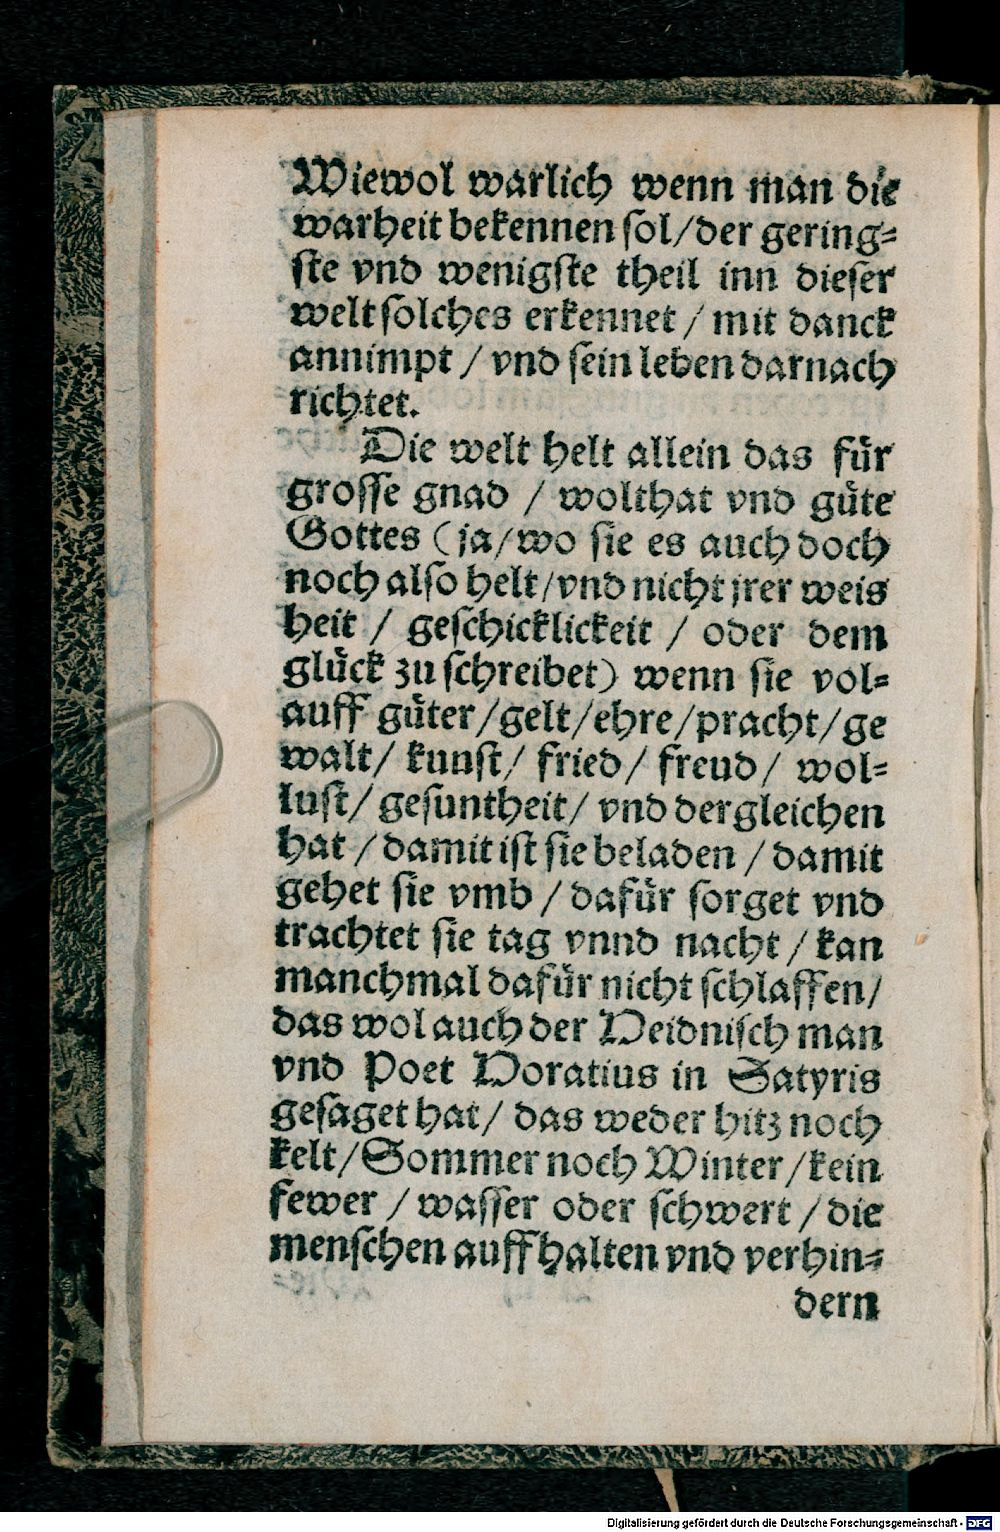 Wiewol warlich wenn man die
warheit bekennen sol/der gering=
ste vnd wenigste theil inn dieser
welt solches erkennet / mit danck
annimpt / vnd sein leben darnach
richtet.
Die welt helt allein das für
grosse gnad / wolthat vnd güte
Gottes (ja/wo sie es auch doch
noch also helt/vnd nicht jrer weis
heit / geschicklickeit / oder dem
glück zu schreibet) wenn sie vol=
auff güter/gelt/ehre/pracht/ge
walt/ kunst/ fried/ freud/ wol=
lust/ gesuntheit/ vnd dergleichen
hat / damit ist sie beladen / damit
gehet sie vmb / dafür sorget vnd
trachtet sie tag vnnd nacht / kan
manchmal dafür nicht schlaffen/
das wol auch der Heidnisch man
vnd Poet Horatius in Satyris
gesaget hat/ das weder hitz noch
kelt/Sommer noch Winter/kein
fewer / wasser oder schwert / die
menschen auffhalten vnd verhin=
dern
Digitalisierung gefördert durch die Deutsche Forschungsgemeinschaft - DFG